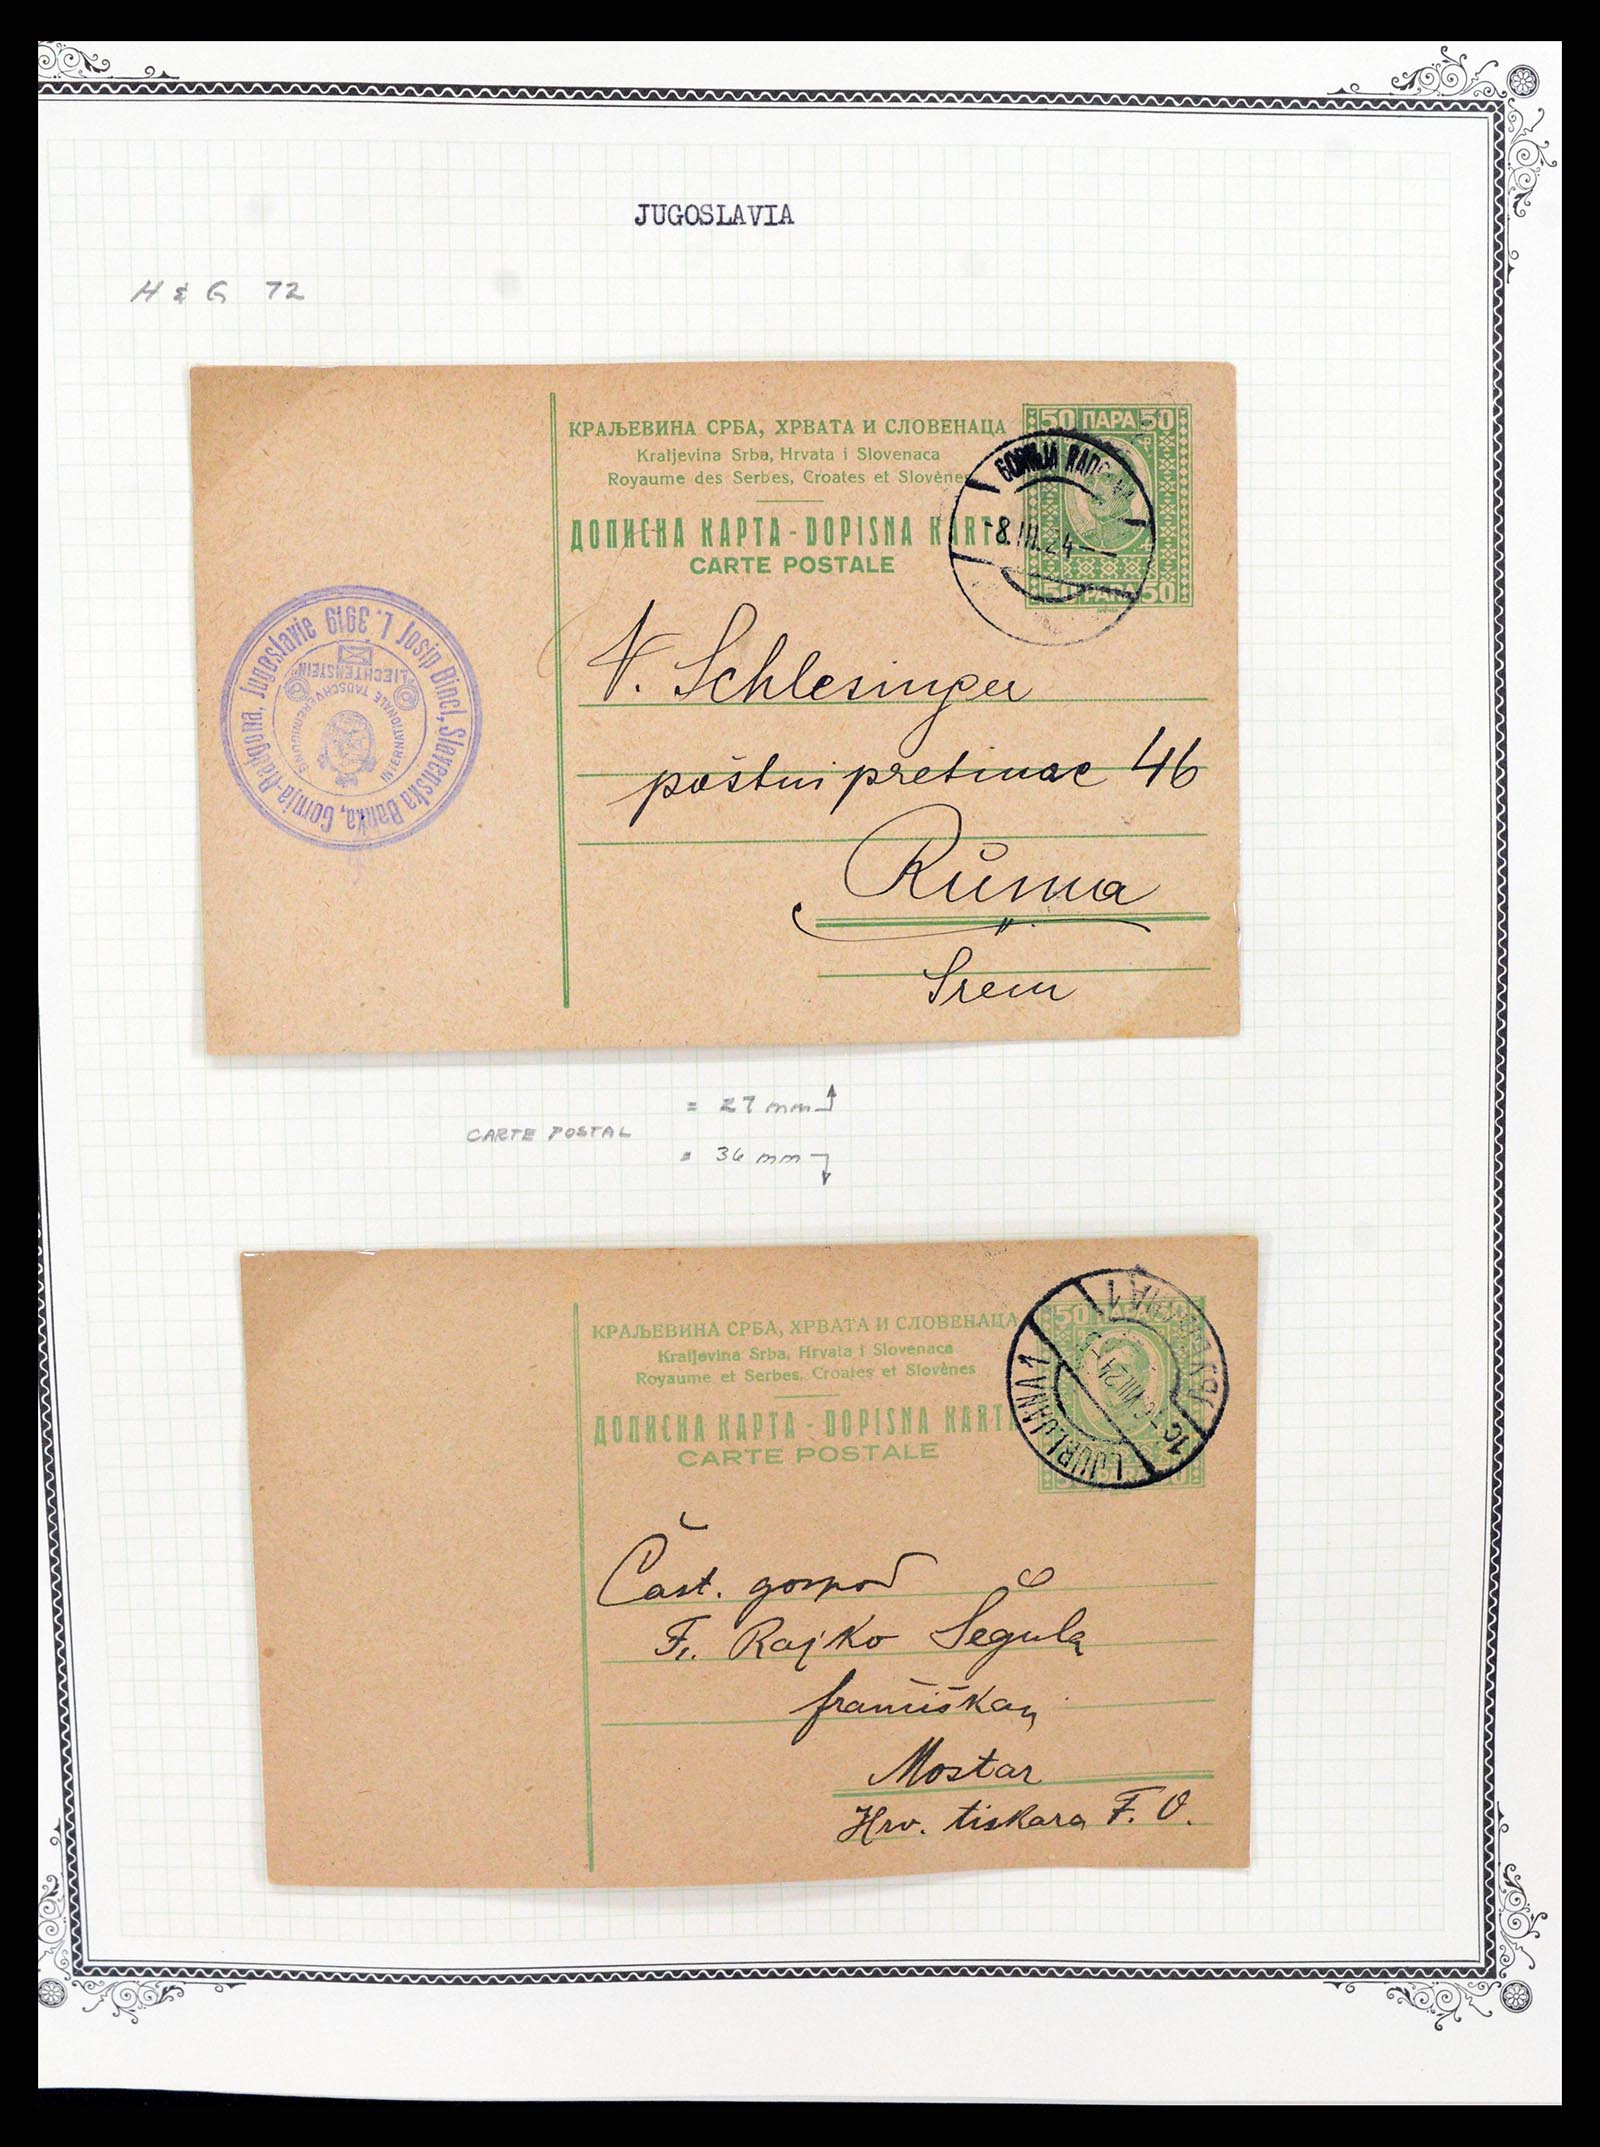 JUGOSLAVIA
H & G 72
КРАЉЕВИНА СРБА, ХРВАТА И СЛОВЕНАЦА
Kraljevina Srba, Hrvata i Slovenaca
Royaume des Serbes, Croates et Slovènes
ДОПИСНА КАРТА - DOPISNA KARTA
CARTE POSTALE
50 ПАРА 50
50 PARA 50
GORNJA RADGONA
-8.III.24
1. Josip Bincl, Slavenska Banka, Gornja-Radgona, Jugoslavie 3919
INTERNATIONALE TAUSCHVEREINIGUNG
"LIECHTENSTEIN"
V. Schlesinger
poštni pretinac 46
Ruma
Srem
= 27 mm
CARTE POSTAL
= 36 mm
КРАЉЕВИНА СРБА, ХРВАТА И СЛОВЕНАЦА
Kraljevina Srba, Hrvata i Slovenaca
Royaume et Serbes, Croates et Slovènes
ДОПИСНА КАРТА - DOPISNA KARTA
CARTE POSTALE
50 ПАРА 50
LJUBLJANA 1
Čast. gospod
Fr. Rajko Šegula
frančiškan
Mostar
Hrv. tiskara F. O.